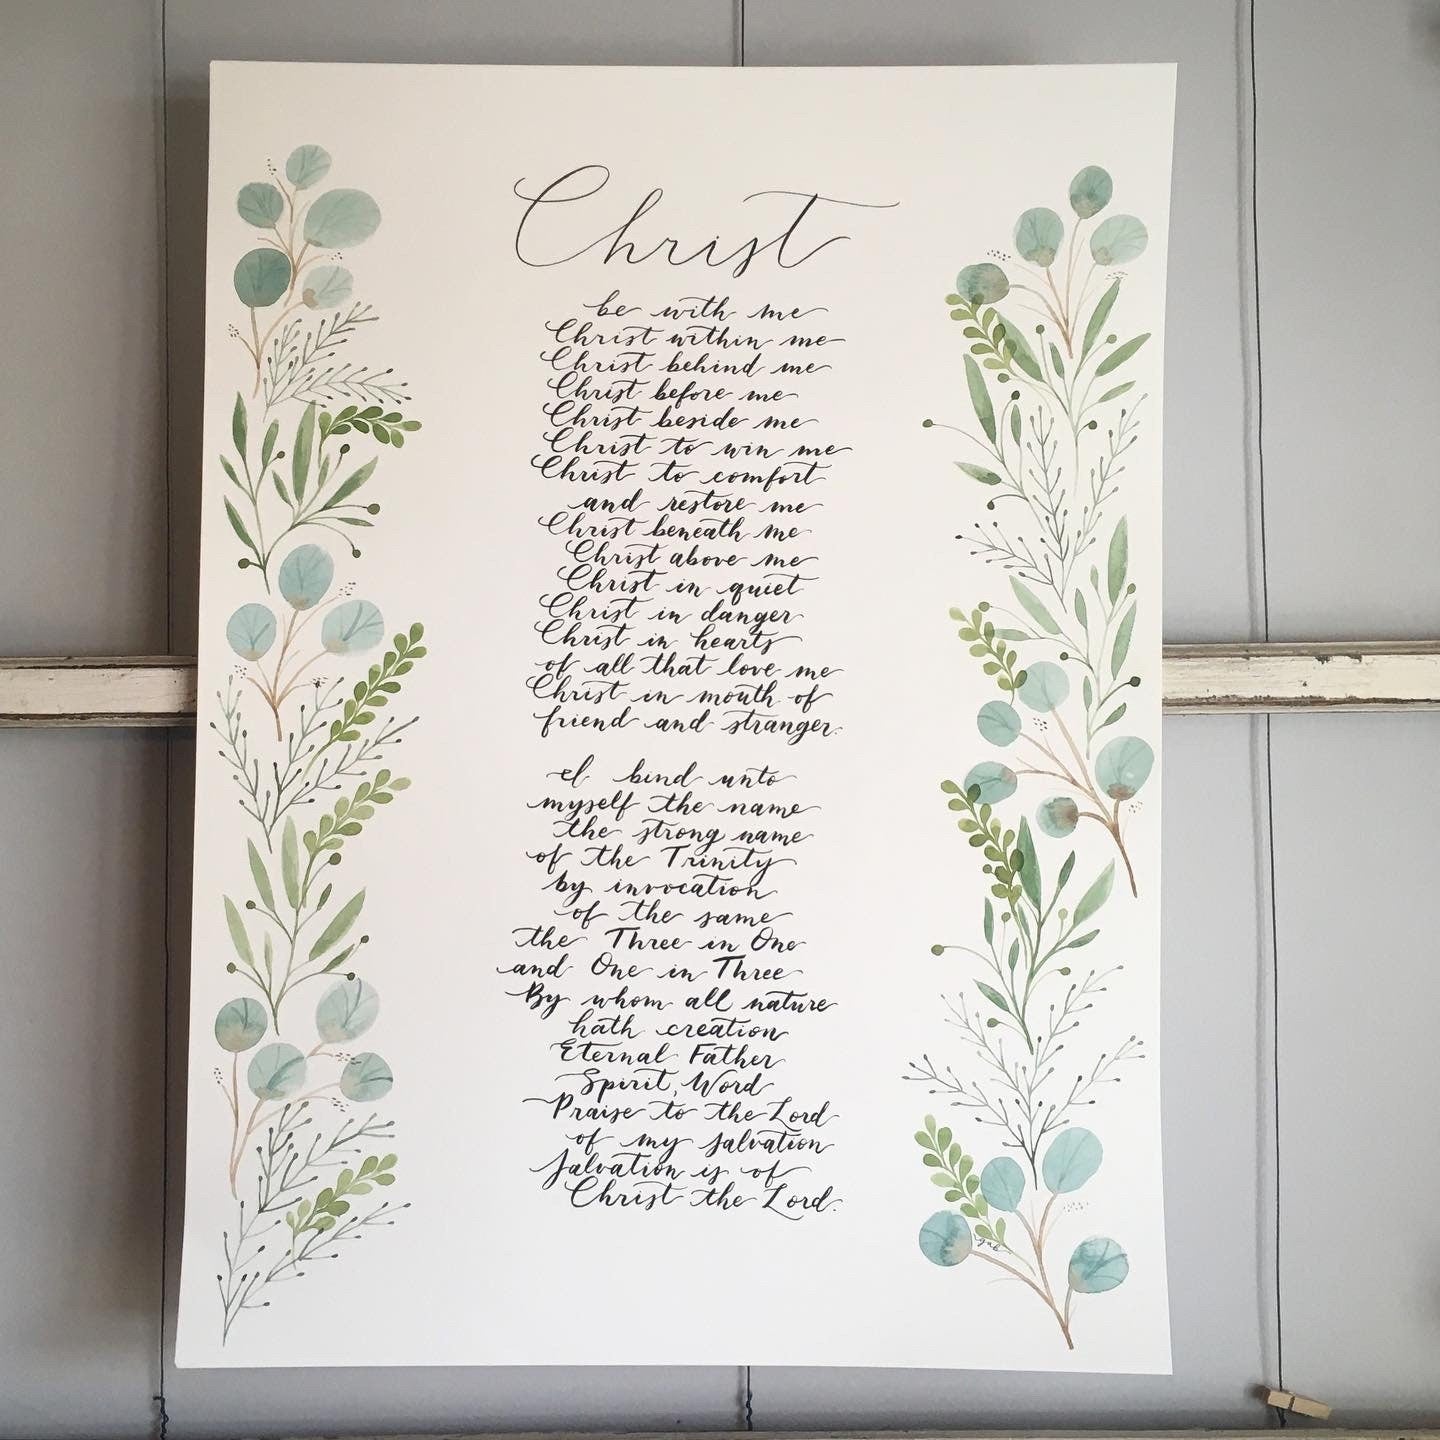 Christ
be with me
Christ within me
Christ behind me
Christ before me
Christ beside me
Christ to win me
Christ to comfort
and restore me
Christ beneath me
Christ above me
Christ in quiet
Christ in danger
Christ in hearts
of all that love me
Christ in mouth of
friend and stranger.
I bind unto
myself the name
the strong name
of the Trinity
by invocation
of the same
the Three in One
and One in Three
By whom all nature
hath creation
Eternal Father
Spirit, Word
Praise to the Lord
of my salvation
Salvation is of
Christ the Lord.